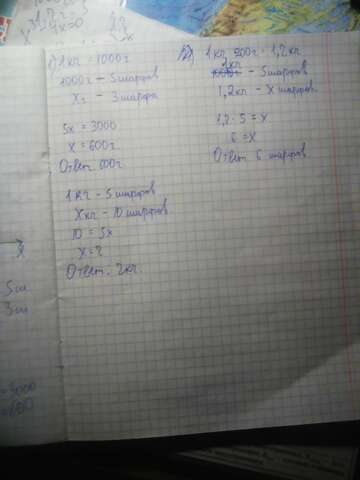 1) 1 кг = 1000 г
1000 г – 5 шарфов
х г – 3 шарфа
5х = 3000
х = 600 г
Ответ 600 г
1 кг – 5 шарфов
х кг – 10 шарфов
10 = 5х
х = 2
Ответ. 2 кг.
2) 1 кг 200 г = 1,2 кг
1 кг – 5 шарфов
1,2 кг – х шарфов.
1,2 · 5 = х
6 = х
Ответ 6 шарфов
х
5 ш
3 ш
= 3000
= 600